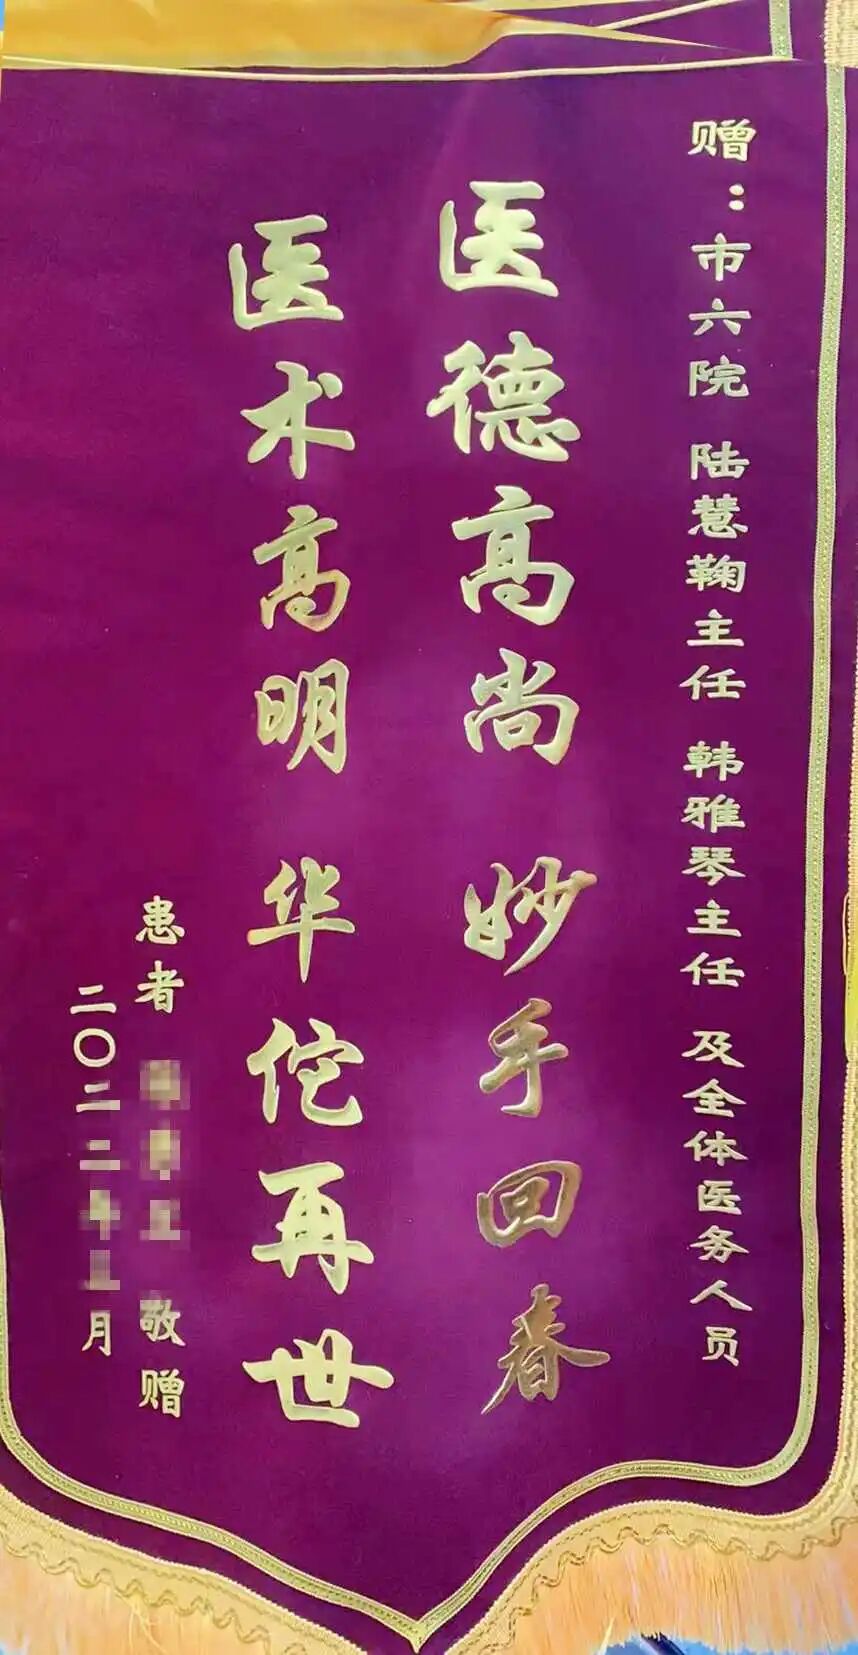 赠：市六院 陆慧鞠主任 韩雅琴主任 及全体医务人员
医德高尚 妙手回春
医术高明 华佗再世
患者 敬赠
二〇二二年 月